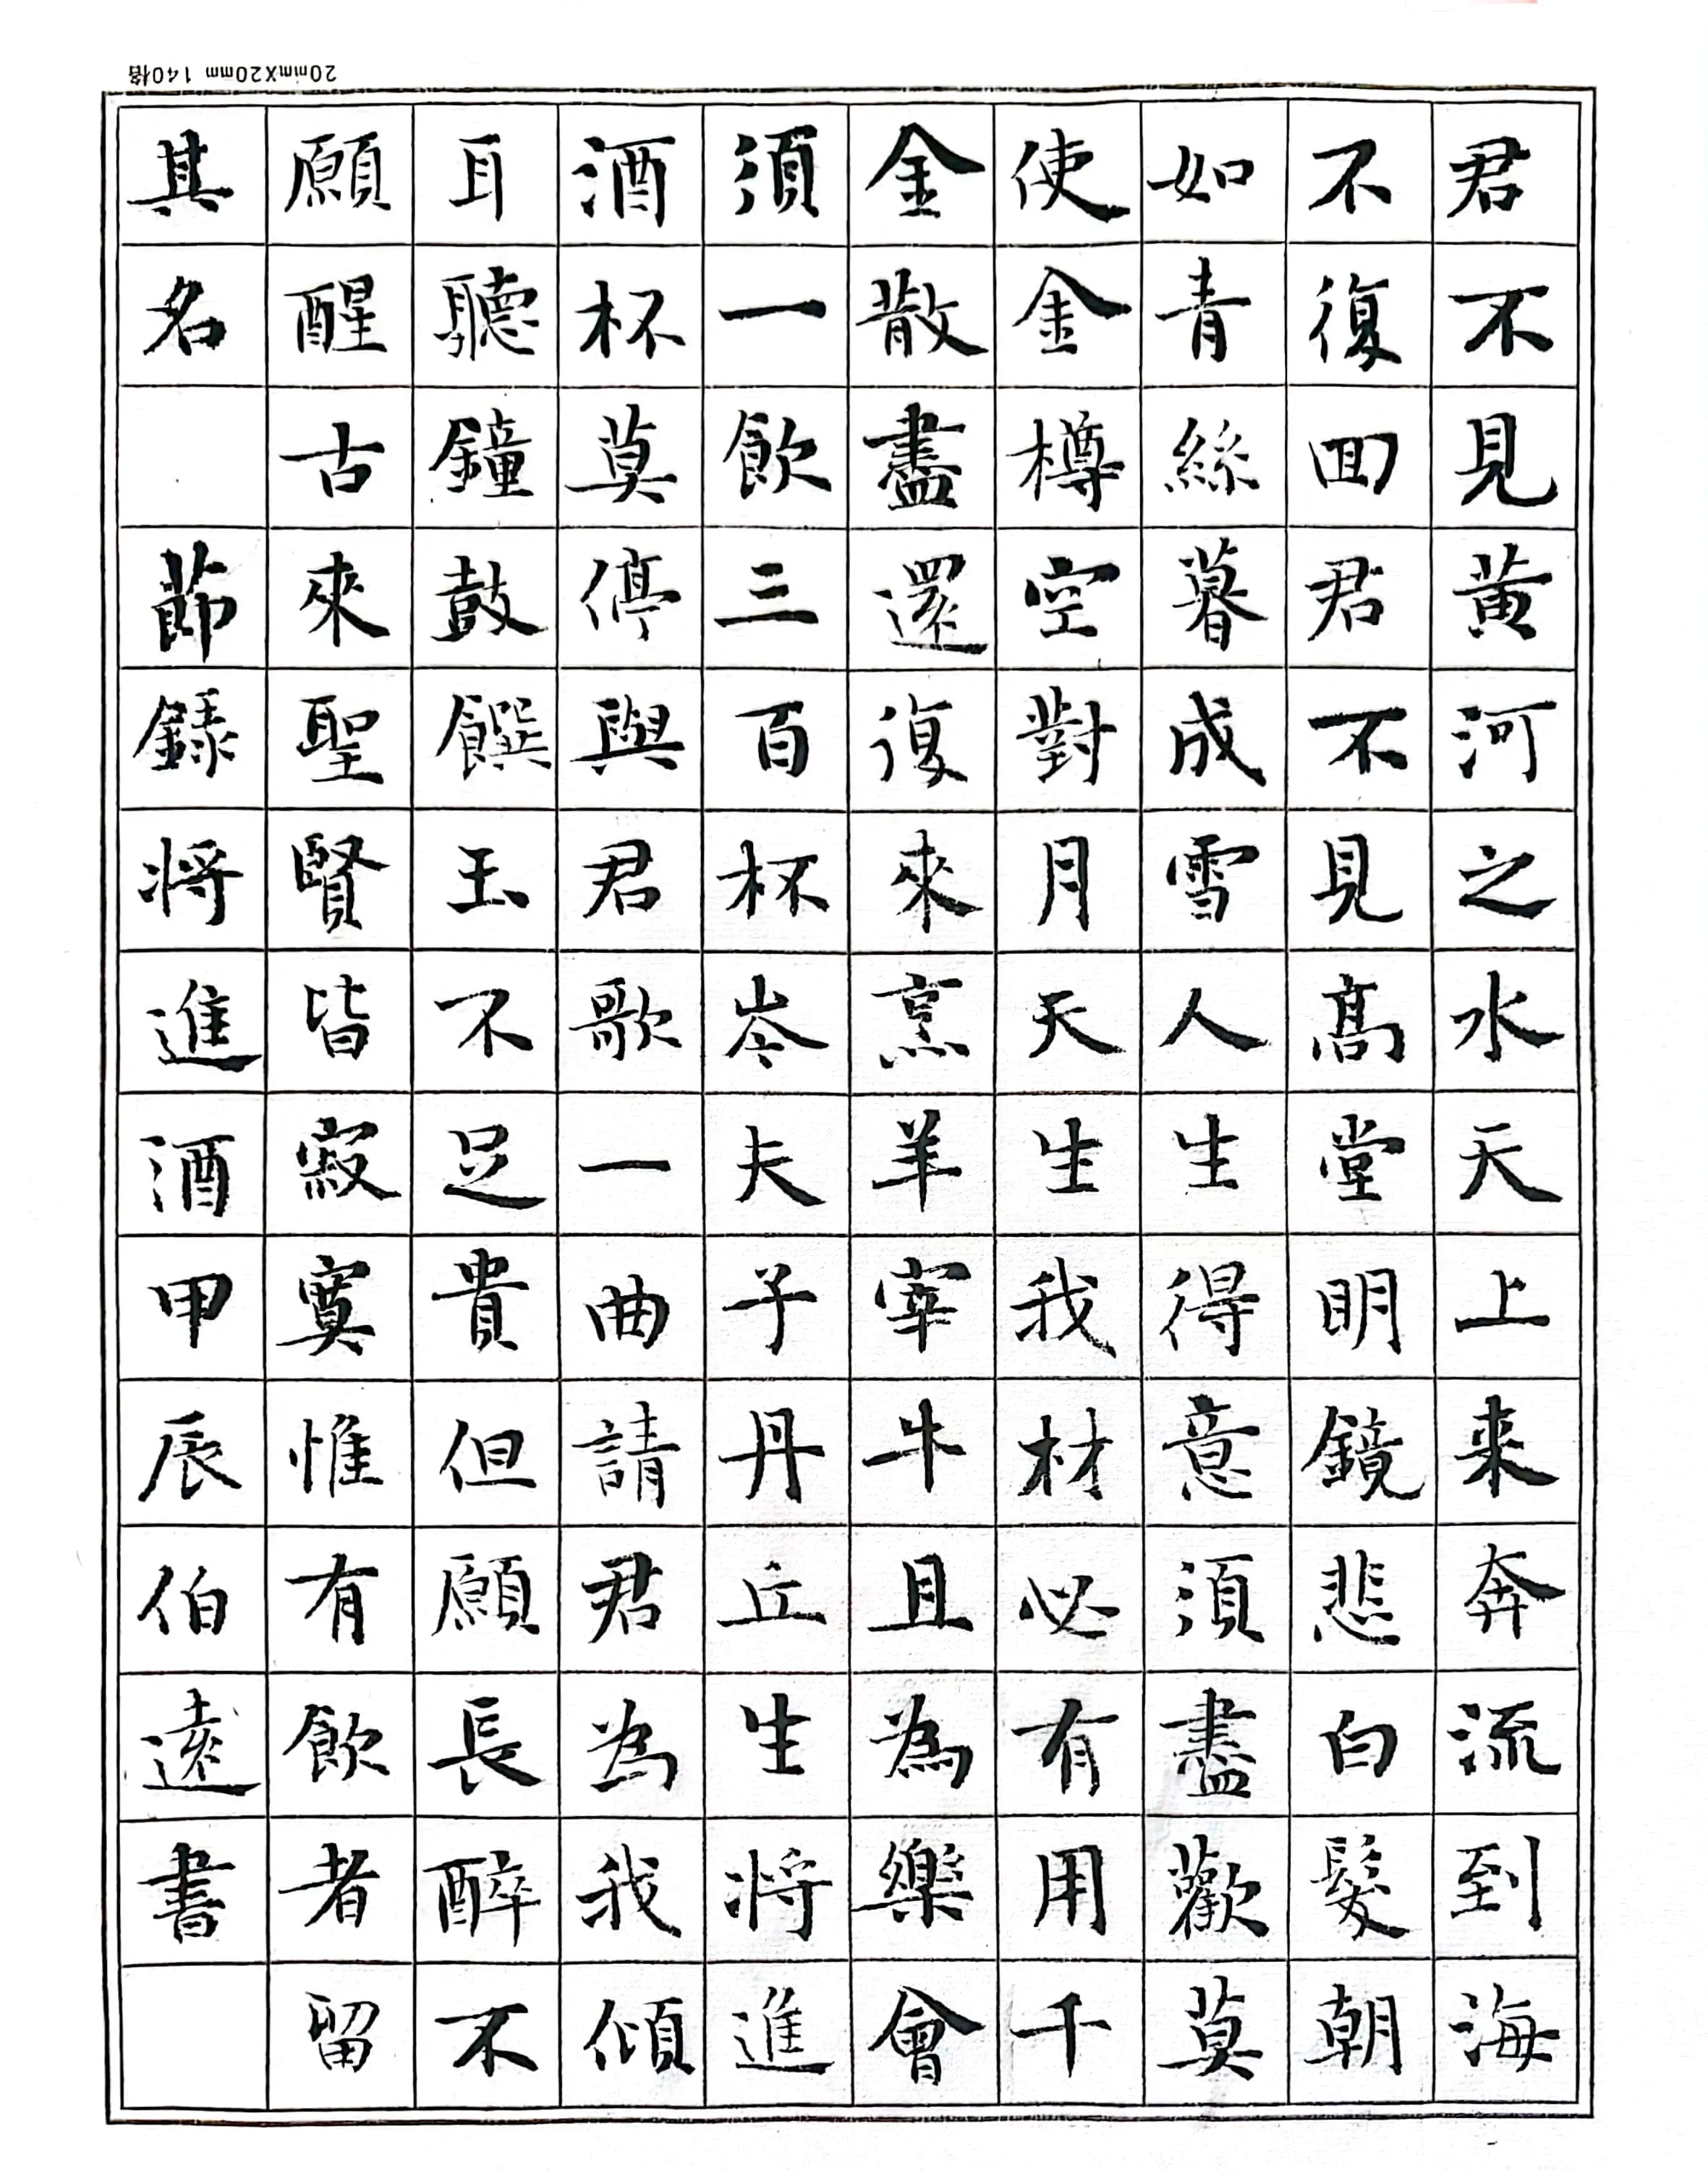 20mmX20mm 140格
君不見黄河之水天上来奔流到海
不復囬君不見髙堂明鏡悲白髮朝
如青絲暮成雪人生得意須盡歡莫
使金樽空對月天生我材必有用千
金散盡還復來烹羊宰牛且為樂會
須一飲三百杯岑夫子丹丘生将進
酒杯莫停與君歌一曲請君為我傾
耳聽鐘鼓饌玉不足貴但願長醉不
願醒古來聖賢皆寂寞惟有飲者留
其名 節錄将進酒甲辰伯遠書